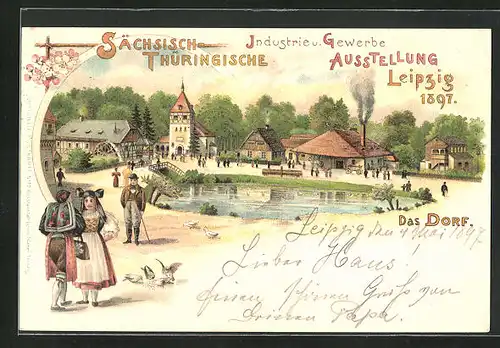 SÄCHSISCH-
THÜRINGISCHE
Industrie u. Gewerbe
AUSSTELLUNG
Leipzig
1897.
DAS DORF.
Leipzig den 4 Mai 1897
Lieber Hans.
einen schönen Gruß von
Deinem Papa.